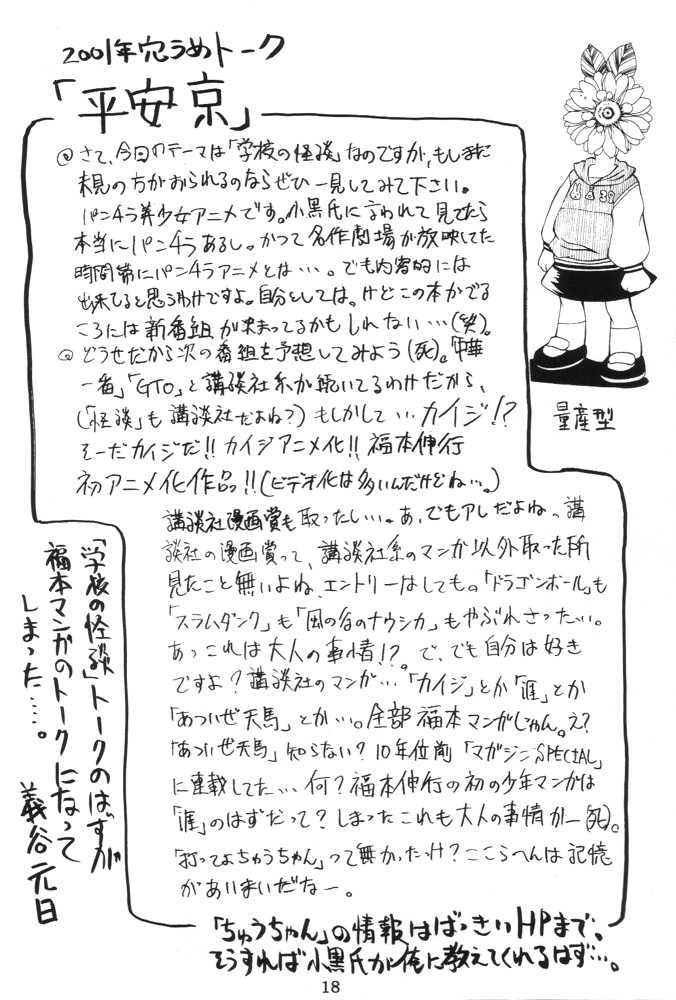 2001年穴うめトーク
「平安京」
◎さて、今回のテーマは「学校の怪談」なのですが、もしまだ
未見の方がおられるのならぜひ一見してみて下さい。
パンチラ美少女アニメです。小黒氏に言われて見てたら
本当にパンチラあるし。かつて名作劇場が放映してた
時間帯にパンチラアニメとは…。でも内容的には
出来てると思うわけですよ。自分としては。けどこの本がでる
ころには新番組が決まってるかもしれない…(笑)。
◎どうせだから次の番組を予想してみよう(死)。「中華
一番」「GTO」と講談社系が続いてるわけだから、
(「怪談」も講談社だよね?)もしかして…カイジ!?
そーだカイジだ!!カイジアニメ化!!福本伸行
初アニメ化作品!!(ビデオ化は多いんだけどね…。)
講談社漫画賞も取ったしい…。あ、でもアレだよね。講
談社の漫画賞って、講談社系のマンガ以外取った所
見たこと無いよね、エントリーはしても。「ドラゴンボール」も
「スラムダンク」も「風の谷のナウシカ」もやぶれさったい…。
あっこれは大人の事情!?。で、でも自分は好き
ですよ?講談社のマンガ…「カイジ」とか「涯」とか
「あついぜ天馬」とか…。全部福本マンガじゃん。え?
「あついぜ天馬」知らない?10年位前「マガジンSPECIAL」
に連載してた…何?福本伸行の初の少年マンガは
「涯」のはずだって?しまったこれも大人の事情かー(死)。
「打ってよちゅうちゃん」って無かったっけ?ここらへんは記憶
があいまいだなー。
「ちゅうちゃん」の情報はばっきいHPまで。
そうすれば小黒氏が俺に教えてくれるはず…。
「学校の怪談」トークのはずが
福本マンガのトークになって
しまった…。
義谷元日
量産型
18